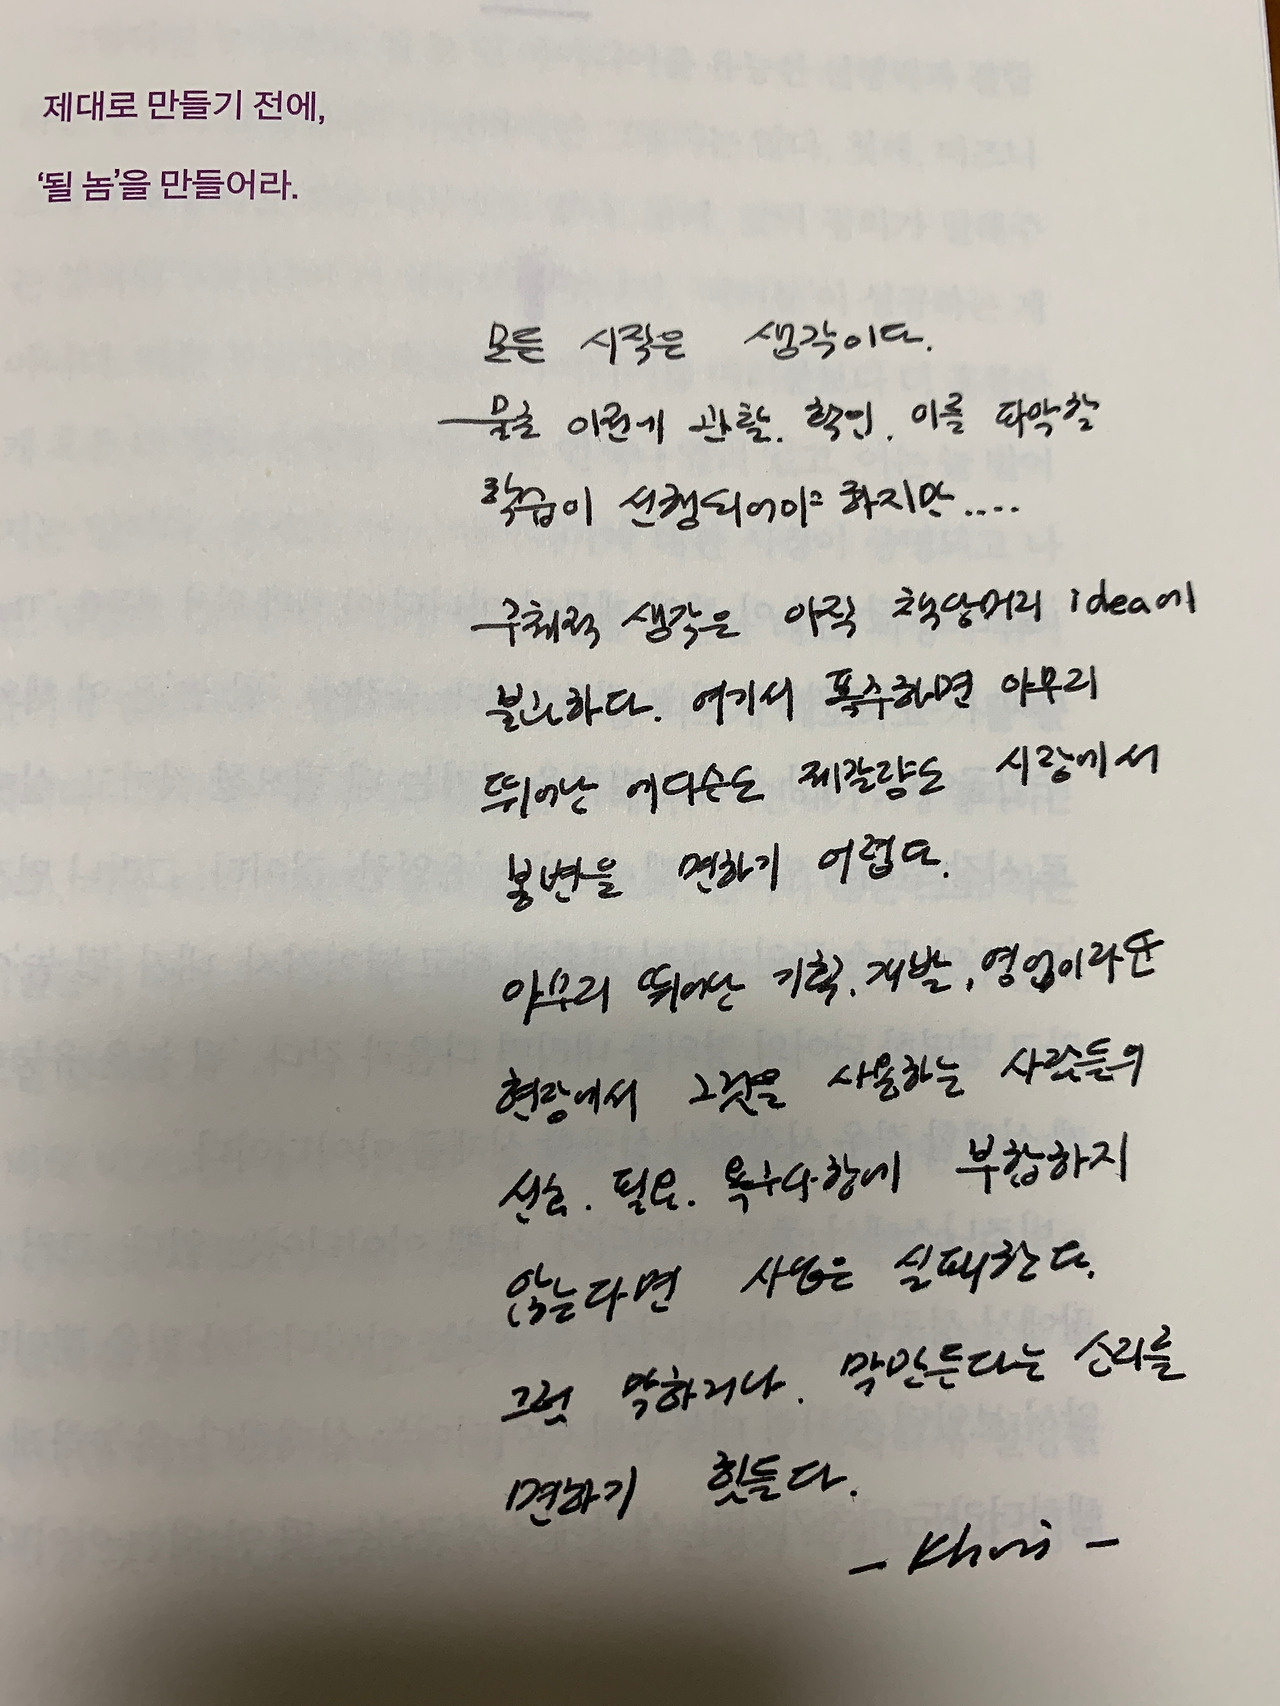 제대로 만들기 전에,
'될 놈'을 만들어라.
모든 시작은 생각이다.
물론 이런게 관찰. 확인. 이를 파악할
학습이 선행되어야 하지만....
구체적 생각은 아직 책상머리 idea에
불과하다. 여기서 폭주하면 아무리
뛰어난 에디슨도 제갈량도 시장에서
봉변을 면하기 어렵다.
아무리 뛰어난 기획, 개발, 영업이라도
현장에서 그것을 사용하는 사람들의
선호. 필요. 요구사항에 부합하지
않는다면 사업은 실패한다.
그럼 막하거나. 막만든다는 소리를
면하기 힘들다.
- Khori -